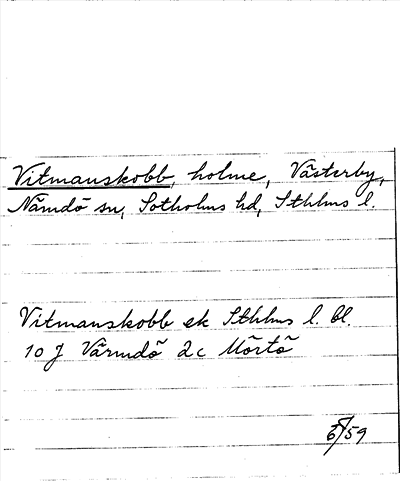 Vitmanskobb, holme, Västerby,
Nämdö sn, Sotholms hd, Sthlms l.
Vitmanskobb ek Sthlms l. bl.
10 J Värmdö 2c Mörtö
/59